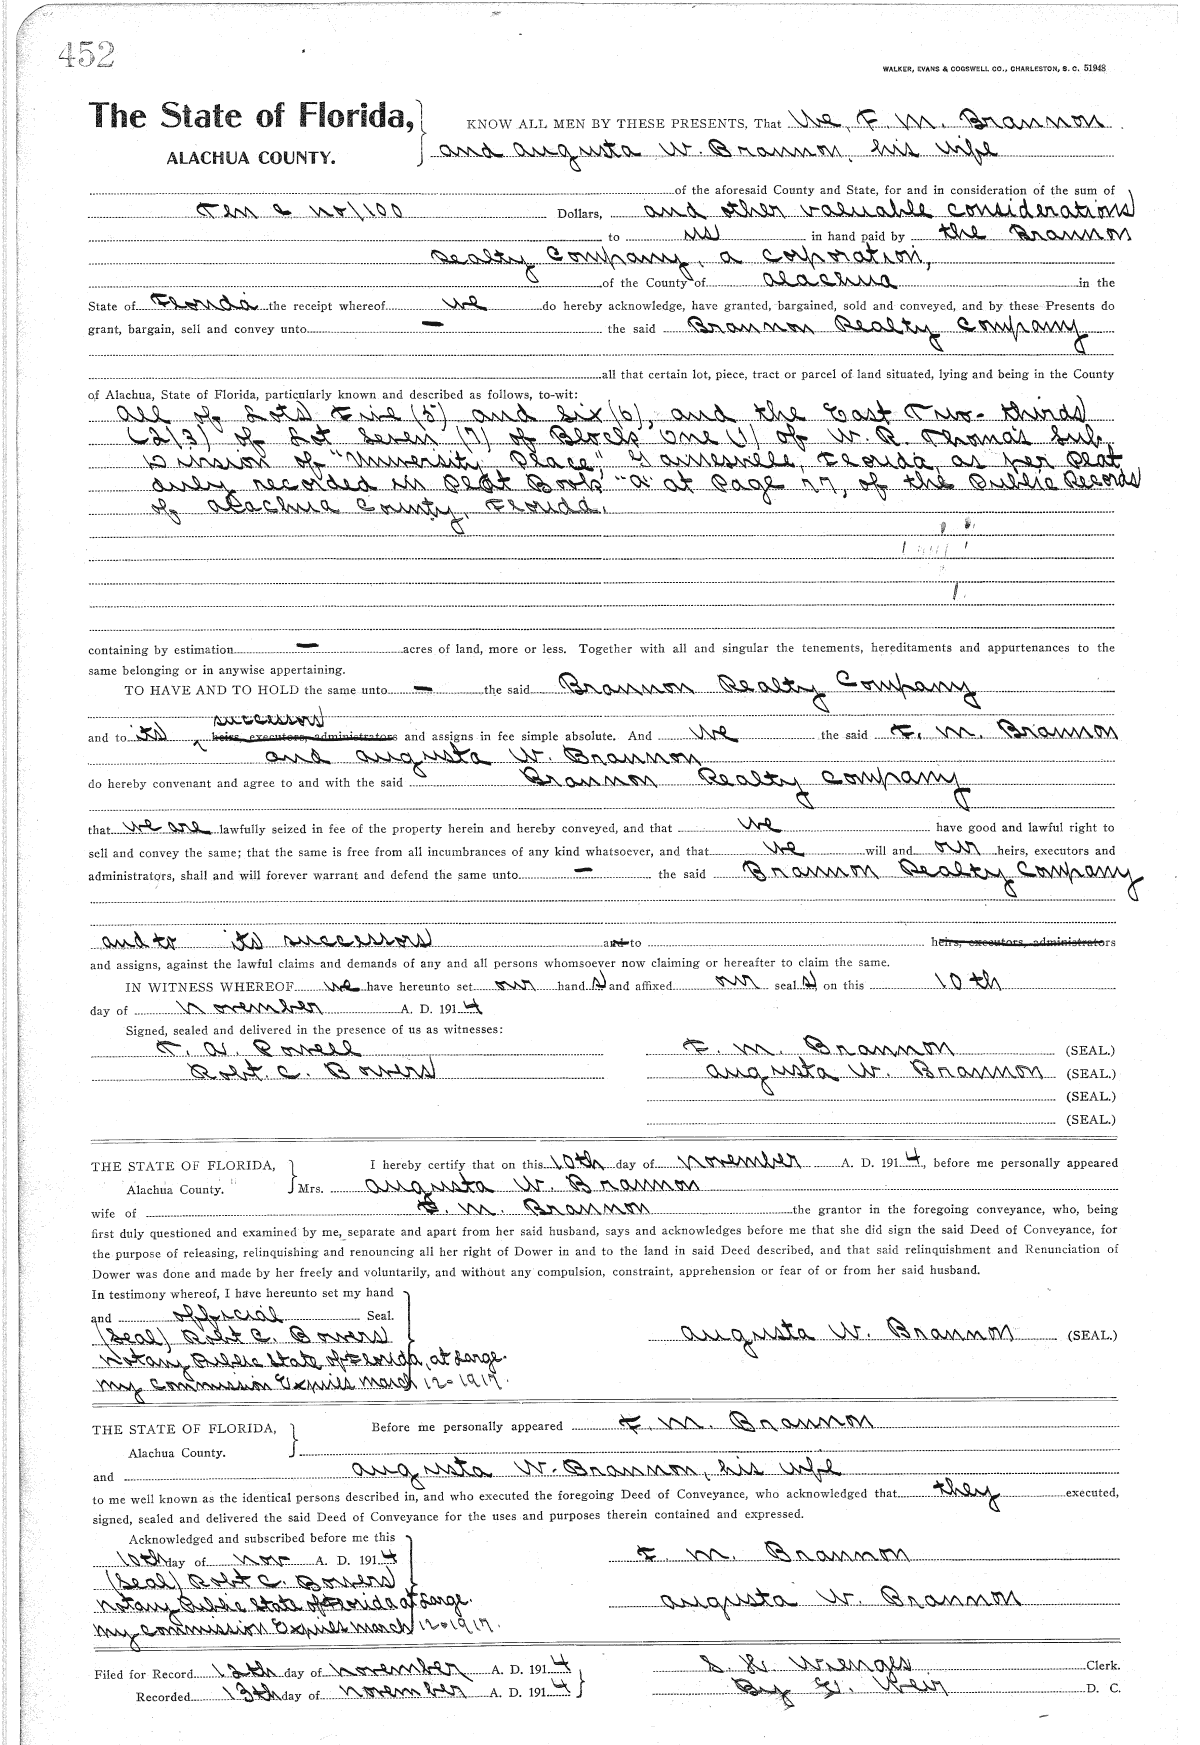 452
WALKER, EVANS & COGSWELL CO., CHARLESTON, S. C. 51948
The State of Florida,
ALACHUA COUNTY.
KNOW ALL MEN BY THESE PRESENTS, That We, F. M. Brannon
and Augusta W. Brannon, his wife
of the aforesaid County and State, for and in consideration of the sum of
Ten & no/100 Dollars, and other valuable considerations
to us in hand paid by the Brannon
Realty Company, a corporation,
of the County of Alachua in the
State of Florida the receipt whereof we do hereby acknowledge, have granted, bargained, sold and conveyed, and by these Presents do
grant, bargain, sell and convey unto — the said Brannon Realty Company
all that certain lot, piece, tract or parcel of land situated, lying and being in the County
of Alachua, State of Florida, particularly known and described as follows, to-wit:
All of Lots Five (5) and Six (6), and the East Two-thirds
(2/3) of Lot Seven (7) of Block One (1) of W. R. Thomas Sub,
Division of "University Place," Gainesville, Florida, as per Plat
duly recorded in Plat Book "A" at Page 77, of the Public Records
of Alachua County, Florida.
containing by estimation — acres of land, more or less. Together with all and singular the tenements, hereditaments and appurtenances to the
same belonging or in anywise appertaining.
TO HAVE AND TO HOLD the same unto — the said Brannon Realty Company
successors
and to its heirs, executors, administrators and assigns in fee simple absolute. And we the said F. M. Brannon
and Augusta W. Brannon
do hereby convenant and agree to and with the said Brannon Realty Company
that we are lawfully seized in fee of the property herein and hereby conveyed, and that we have good and lawful right to
sell and convey the same; that the same is free from all incumbrances of any kind whatsoever, and that we will and our heirs, executors and
administrators, shall and will forever warrant and defend the same unto — the said Brannon Realty Company
and to its successors and to heirs, executors, administrators
and assigns, against the lawful claims and demands of any and all persons whomsoever now claiming or hereafter to claim the same.
IN WITNESS WHEREOF we have hereunto set our hand s and affixed our seal s on this 10th
day of November A. D. 1914
Signed, sealed and delivered in the presence of us as witnesses:
T. W. Powell F. M. Brannon (SEAL.)
Robt. C. Bowers Augusta W. Brannon (SEAL.)
(SEAL.)
(SEAL.)
THE STATE OF FLORIDA, I hereby certify that on this 10th day of November A. D. 1914, before me personally appeared
Alachua County. Mrs. Augusta W. Brannon
wife of F. M. Brannon the grantor in the foregoing conveyance, who, being
first duly questioned and examined by me, separate and apart from her said husband, says and acknowledges before me that she did sign the said Deed of Conveyance, for
the purpose of releasing, relinquishing and renouncing all her right of Dower in and to the land in said Deed described, and that said relinquishment and Renunciation of
Dower was done and made by her freely and voluntarily, and without any compulsion, constraint, apprehension or fear of or from her said husband.
In testimony whereof, I have hereunto set my hand
and official Seal.
(Seal) Robt C. Bowers Augusta W. Brannon (SEAL.)
Notary Public State of Florida, at Large.
My Commission Expires March 12-1917.
THE STATE OF FLORIDA, Before me personally appeared F. M. Brannon
Alachua County.
and Augusta W. Brannon, his wife
to me well known as the identical persons described in, and who executed the foregoing Deed of Conveyance, who acknowledged that they executed,
signed, sealed and delivered the said Deed of Conveyance for the uses and purposes therein contained and expressed.
Acknowledged and subscribed before me this
10th day of Nov A. D. 1914 F. M. Brannon
(Seal) Robt C. Bowers
Notary Public State of Florida at Large. Augusta W. Brannon
My Commission Expires March 12-1917.
Filed for Record 12th day of November A. D. 1914 S. H. Wienges Clerk.
Recorded 13th day of November A. D. 1914 By Weir D. C.